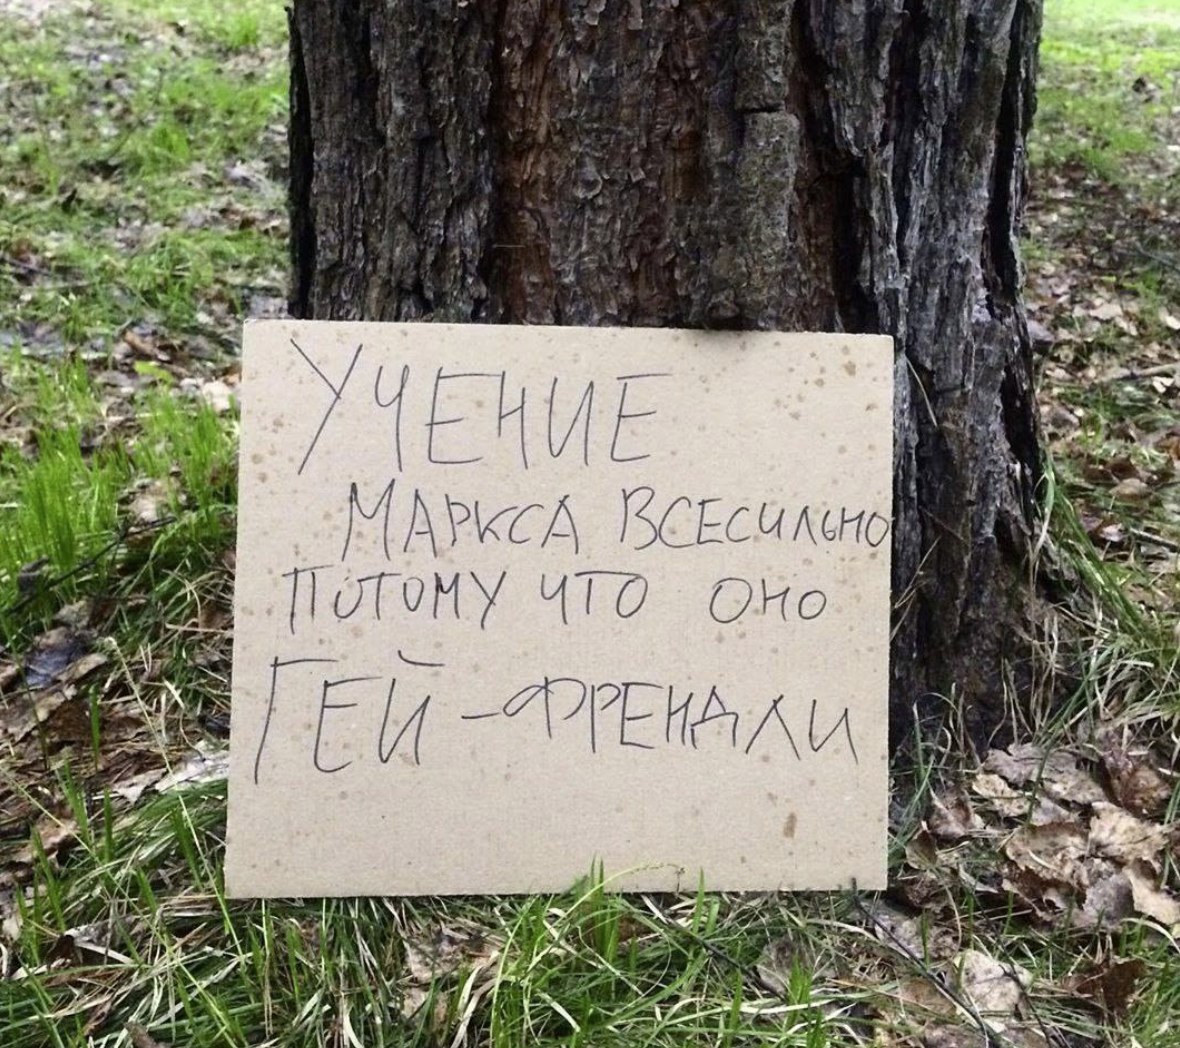 УЧЕНИЕ
МАРКСА ВСЕСИЛЬНО
ПОТОМУ ЧТО ОНО
ГЕЙ-ФРЕНДЛИ